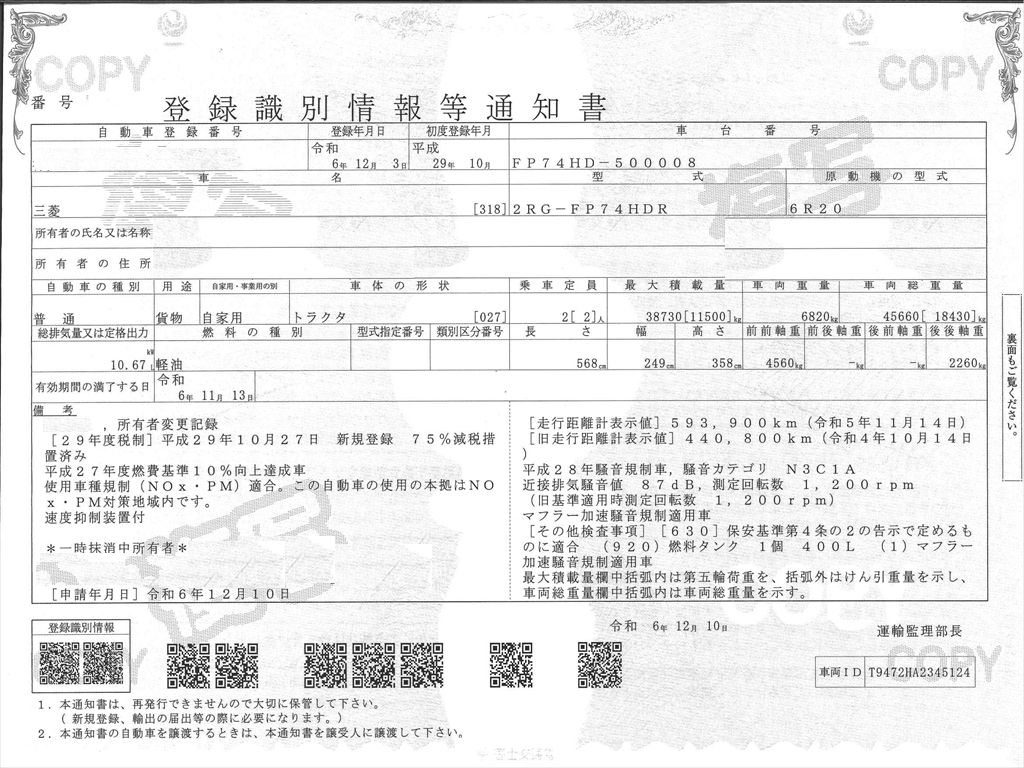 COPY
COPY
番号
登録識別情報等通知書
自動車登録番号
登録年月日
初度登録年月
車台番号
令和
6年 12月 3日
平成
29年 10月
FP74HD-500008
車名
型式
原動機の型式
三菱
[318]
2RG-FP74HDR
6R20
所有者の氏名又は名称
所有者の住所
自動車の種別
用途
自家用・事業用の別
車体の形状
乗車定員
最大積載量
車両重量
車両総重量
普通
貨物
自家用
トラクタ
[027]
2[ 2]人
38730[11500]kg
6820kg
45660[ 18430]kg
総排気量又は定格出力
燃料の種別
型式指定番号
類別区分番号
長さ
幅
高さ
前前軸重
前後軸重
後前軸重
後後軸重
kW
10.67 L
軽油
568cm
249cm
358cm
4560kg
-kg
-kg
2260kg
有効期間の満了する日
令和
6年 11月 13日
備考
,所有者変更記録
[29年度税制]平成29年10月27日 新規登録 75%減税措
置済み
平成27年度燃費基準10%向上達成車
使用車種規制(NOx・PM)適合。この自動車の使用の本拠はNO
x・PM対策地域内です。
速度抑制装置付
*一時抹消中所有者*
[申請年月日]令和6年12月10日
[走行距離計表示値]593,900km(令和5年11月14日)
[旧走行距離計表示値]440,800km(令和4年10月14日
)
平成28年騒音規制車,騒音カテゴリ N3C1A
近接排気騒音値 87dB,測定回転数 1,200rpm
(旧基準適用時測定回転数 1,200rpm)
マフラー加速騒音規制適用車
[その他検査事項][630]保安基準第4条の2の告示で定めるも
のに適合 (920)燃料タンク 1個 400L (1)マフラー
加速騒音規制適用車
最大積載量欄中括弧内は第五輪荷重を、括弧外はけん引重量を示し、
車両総重量欄中括弧内は車両総重量を示す。
裏面もご覧ください。
複写
令和 6年 12月 10日
運輸監理部長
登録識別情報
車両ID
T9472HA2345124
COPY
1.本通知書は、再発行できませんので大切に保管して下さい。
(新規登録、輸出の届出等の際に必要になります。)
2.本通知書の自動車を譲渡するときは、本通知書を譲受人に譲渡して下さい。